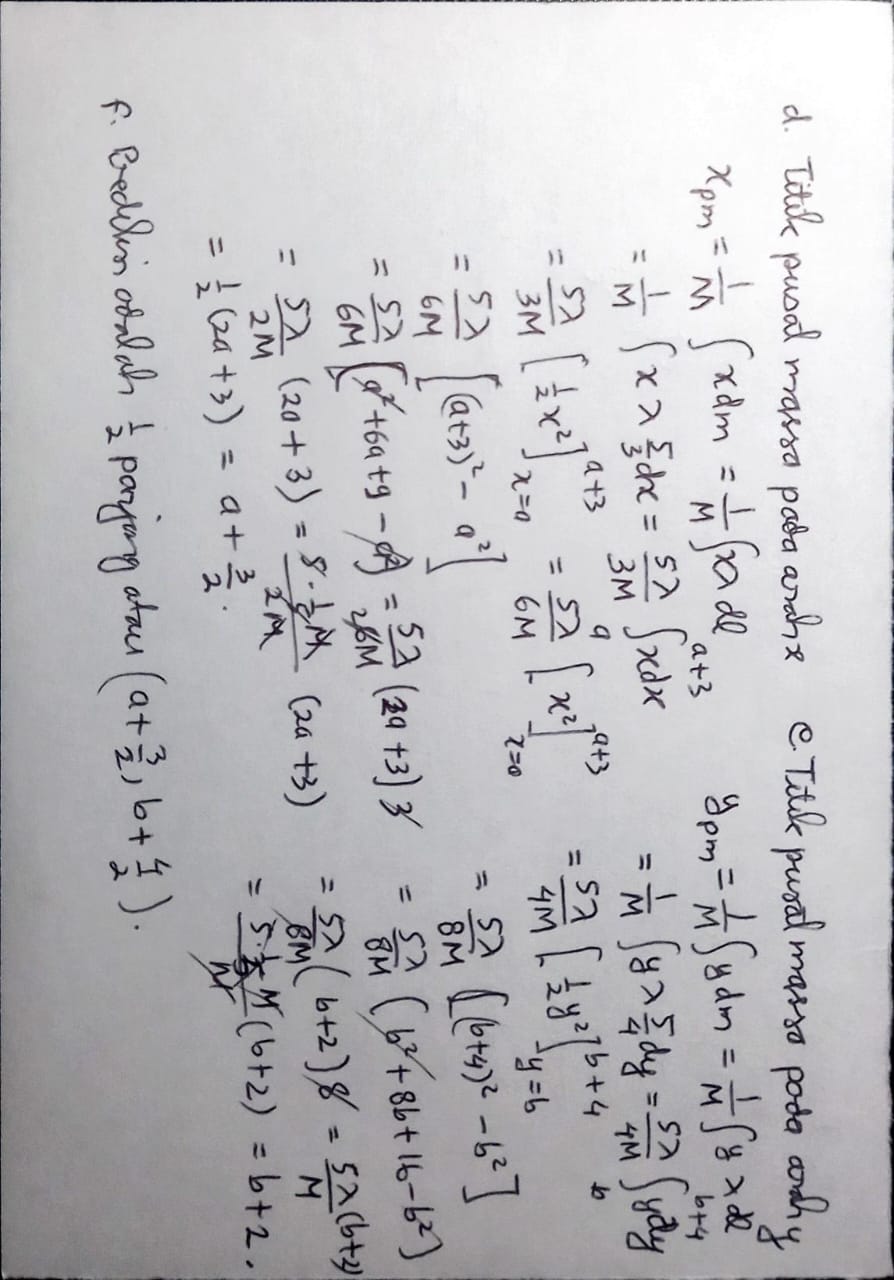 d. Titik pusat massa pada arah x
x_pm = 1/M ∫ x dm = 1/M ∫ xλ dl
= 1/M ∫ x λ 5/3 dx = 5λ/3M ∫_a^{a+3} x dx
= 5λ/3M [1/2 x²]_{x=a}^{a+3} = 5λ/6M [x²]_{x=a}^{a+3}
= 5λ/6M [(a+3)² - a²]
= 5λ/6M [a² + 6a + 9 - a²] = 5λ/26M (2a + 3) 3
= 5λ/2M (2a + 3) = 5·1/5 M/2M (2a + 3)
= 1/2 (2a + 3) = a + 3/2.
e. Titik pusat massa pada arah y
y_pm = 1/M ∫ y dm = 1/M ∫ y λ dl
= 1/M ∫ y λ 5/4 dy = 5λ/4M ∫_b^{b+4} y dy
= 5λ/4M [1/2 y²]_{y=b}^{b+4}
= 5λ/8M [(b+4)² - b²]
= 5λ/8M (b² + 8b + 16 - b²)
= 5λ/8M (b+2) 8 = 5λ/M (b+2)
= 5·1/5 M/M (b+2) = b+2.
f. Prediksi adalah 1/2 panjang atau (a + 3/2, b + 4/2).